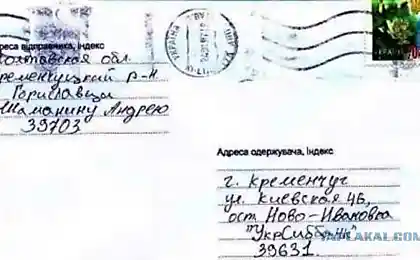 Адреса відправника, індекс
Полтавская обл.
Кременчуцкий р-н
Горишлавци
Шаманину Андрею
39703
УКРАЇНА
Адреса одержувача, індекс
г. Кременчуг
ул. Киевская 4Б,
ост. Ново-Ивановка
"УкрСиббанк"
39631.
YAPLAKAL.COM